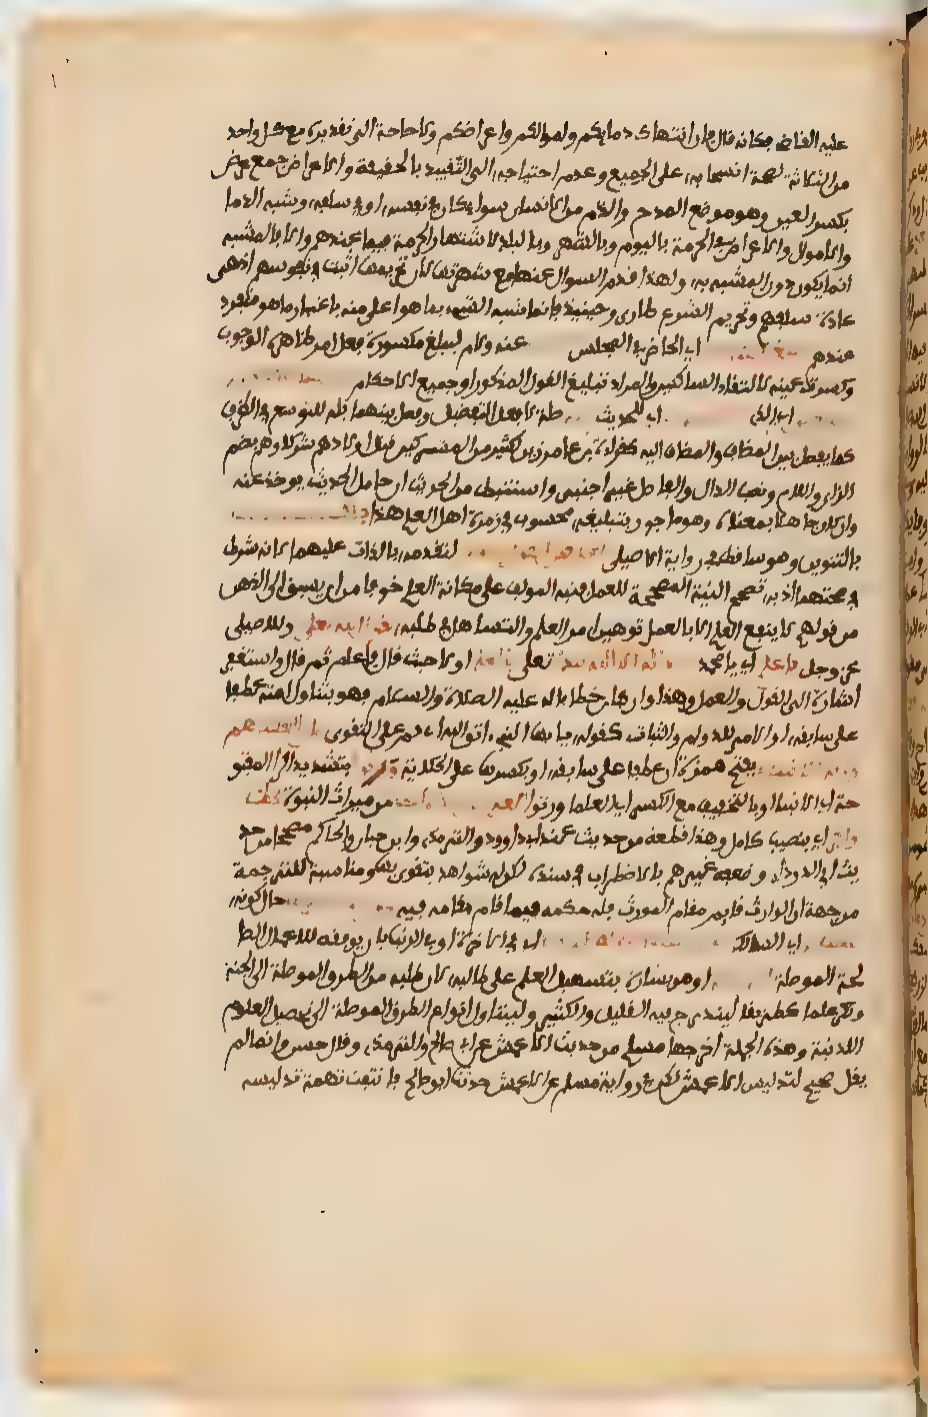 عليه القاضي فكانه قال فان انتهاك دمايكم واموالكم واعراضكم ولا حاجة الى تقديره مع كل واحد
من الثلاثة لصحة انسحابه على الجميع وعدم احتياجه الى التقييد بالحقيقة والاعراض جمع عرض
بكسر العين وهو موضع المدح والذم من الانسان سواء كان في نفسه او في سلفه وشبه الدما
والاموال والاعراض في الحرمة باليوم وبالشهر وبالبلد لاشتهار الحرمة فيها عندهم والا فالمشبه
انما يكون دون المشبه به ولهذا قدم السوال عنها مع شهرتها لان تحريمها اثبت في نفوسهم اذ هي
عادة سلفهم وتحريم الشرع طاري وحينيذ فانما شبه الشيء بما هو اعلى منه باعتبار ما هو مقرر
عندهم اي الحاضر في المجلس عنه ولام ليبلغ مكسورة فعل امر ظاهره الوجوب
وكسرت عينه لالتقاء الساكنين والمراد تبليغ القول المذكور او جميع الاحكام
اي الذي اي للحديث صلة لافعل التفضيل وفصل بينهما بله للتوسع في الظرف
كما يفصل بين المضاف والمضاف اليه كقراءة ابن عامر زين لكثير من المشركين قتل اولادهم شركاوهم بضم
الزاي واللام ونصب الدال والفاصل غير اجنبي واستنبط من الحديث ان حامل الحديث يوخذ عنه
وان كان جاهلا بمعناه وهو ماجور بتبليغه محسوب في زمرة اهل العلم هذا باب
بالتنوين وهو ساقط في رواية الاصيلي لتقدمه بالذات عليهما لانه شرط
في صحتهما اذ به تصحح النية المصححة للعمل فنبه المولف على مكانة العلم خوفا من ان يسبق الى الذهن
من قولهم لا ينفع العلم الا بالعمل توهين امر العلم والتساهل في طلبه وللاصيلي
عز وجل فاعلم اي يا محمد انه لا اله الا الله تعلى اولا حيث قال فاعلم ثم قال واستغفر
اشارة الى القول والعمل وهذا وان كان خطابا له عليه الصلاة والسلام فهو يتناول امته عطفا
على سابقه او الامر للدوام والثبات كقوله يا ايها النبيء اتق الله اي دم على التقوى
بفتح همزة ان عطفا على سابقه او بكسرها على الحكاية بتشديد الرا المفتو
حة اي الانبيا او بالتخفيف مع الكسر اي العلما ورثوا العلم من ميراث النبوة
وافر اي بنصيب كامل وهذا قطعة من حديث عند ابي داوود والترمذي وابن حبان والحاكم مصححا من حد
يث ابي الدرداء وضعفه غيرهم بالاضطراب في سنده لكن له شواهد يتقوى بها ومناسبة للترجمة
من جهة ان الوارث قايم مقام المورث فله حكمه فيما قام مقامه فيه حال كونه
اي السالك اي في الاخرة او في الدنيا بان يوفقه للاعمال الصا
لحة الموصلة او هو بشارة بتسهيل العلم على طالبه لان طلبه من الطرق الموصلة الى الجنة
ونكر علما كطريقا ليندرج فيه القليل والكثير وليتناول انواع الطرق الموصلة الى تحصيل العلوم
الدينية وهذه الجملة اخرجها مسلم من حديث الاعمش عن ابي صالح والترمذي وقال حسن وانما لم
يقل صحيح لتدليس الاعمش لكن في رواية مسلم عن الاعمش حدثنا ابو صالح فانتفت تهمة تدليسه